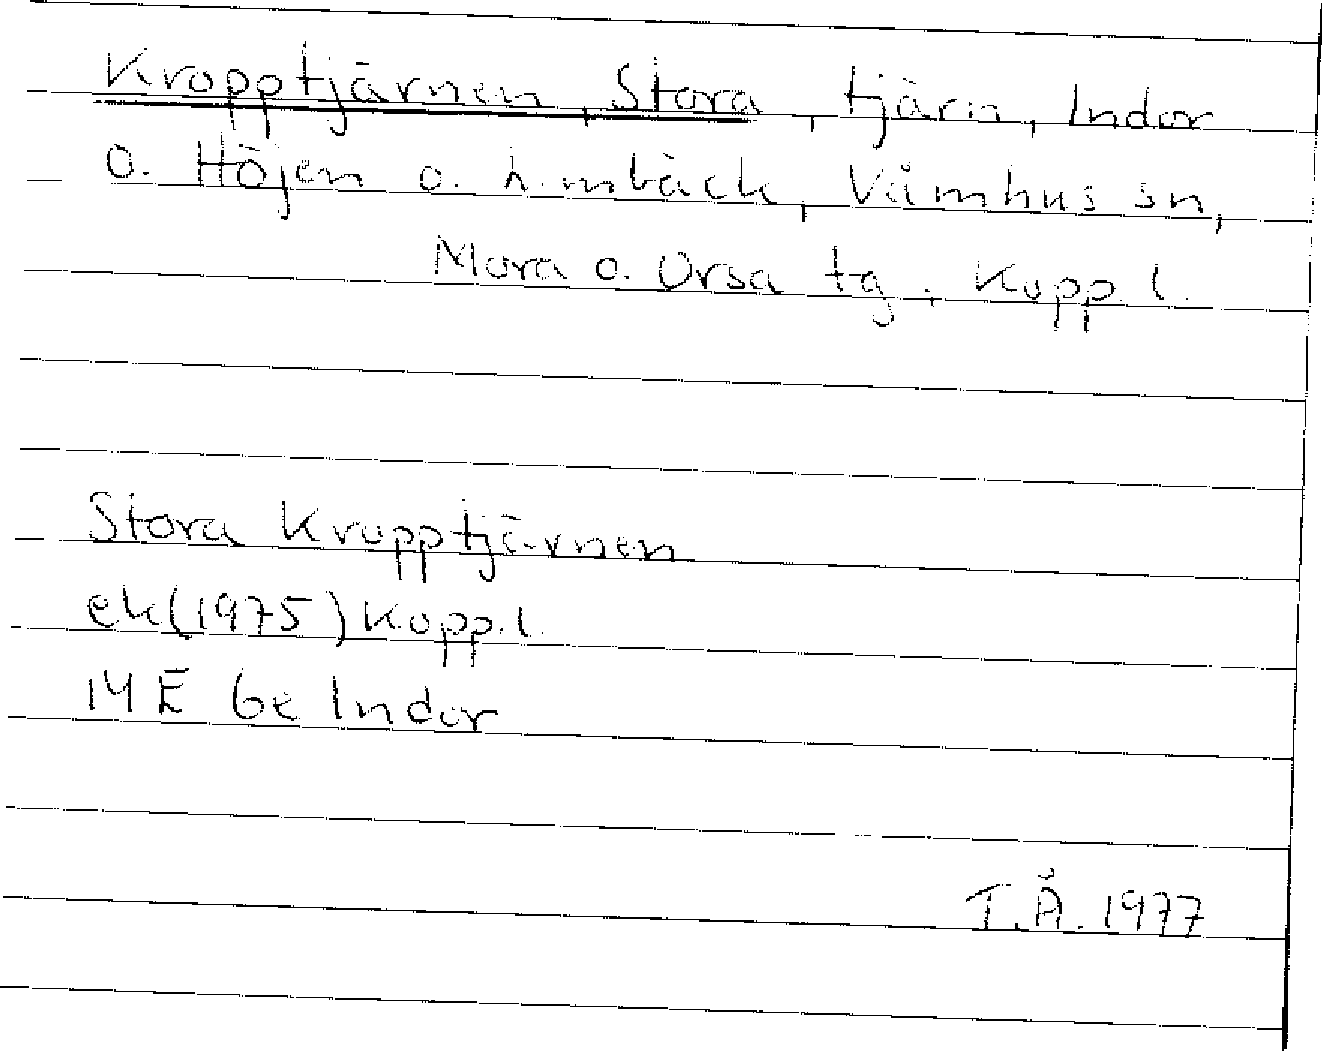 Kropptjärnen, Stora, tjärn, Indor
o. Höjen o. h.mbäck, Våmhus sn,
Mora o. Orsa tg, Kopp. l.
Stora Kropptjärnen
ek(1975) Kopp. l.
14 E 6e Indor
T.Å. 1977